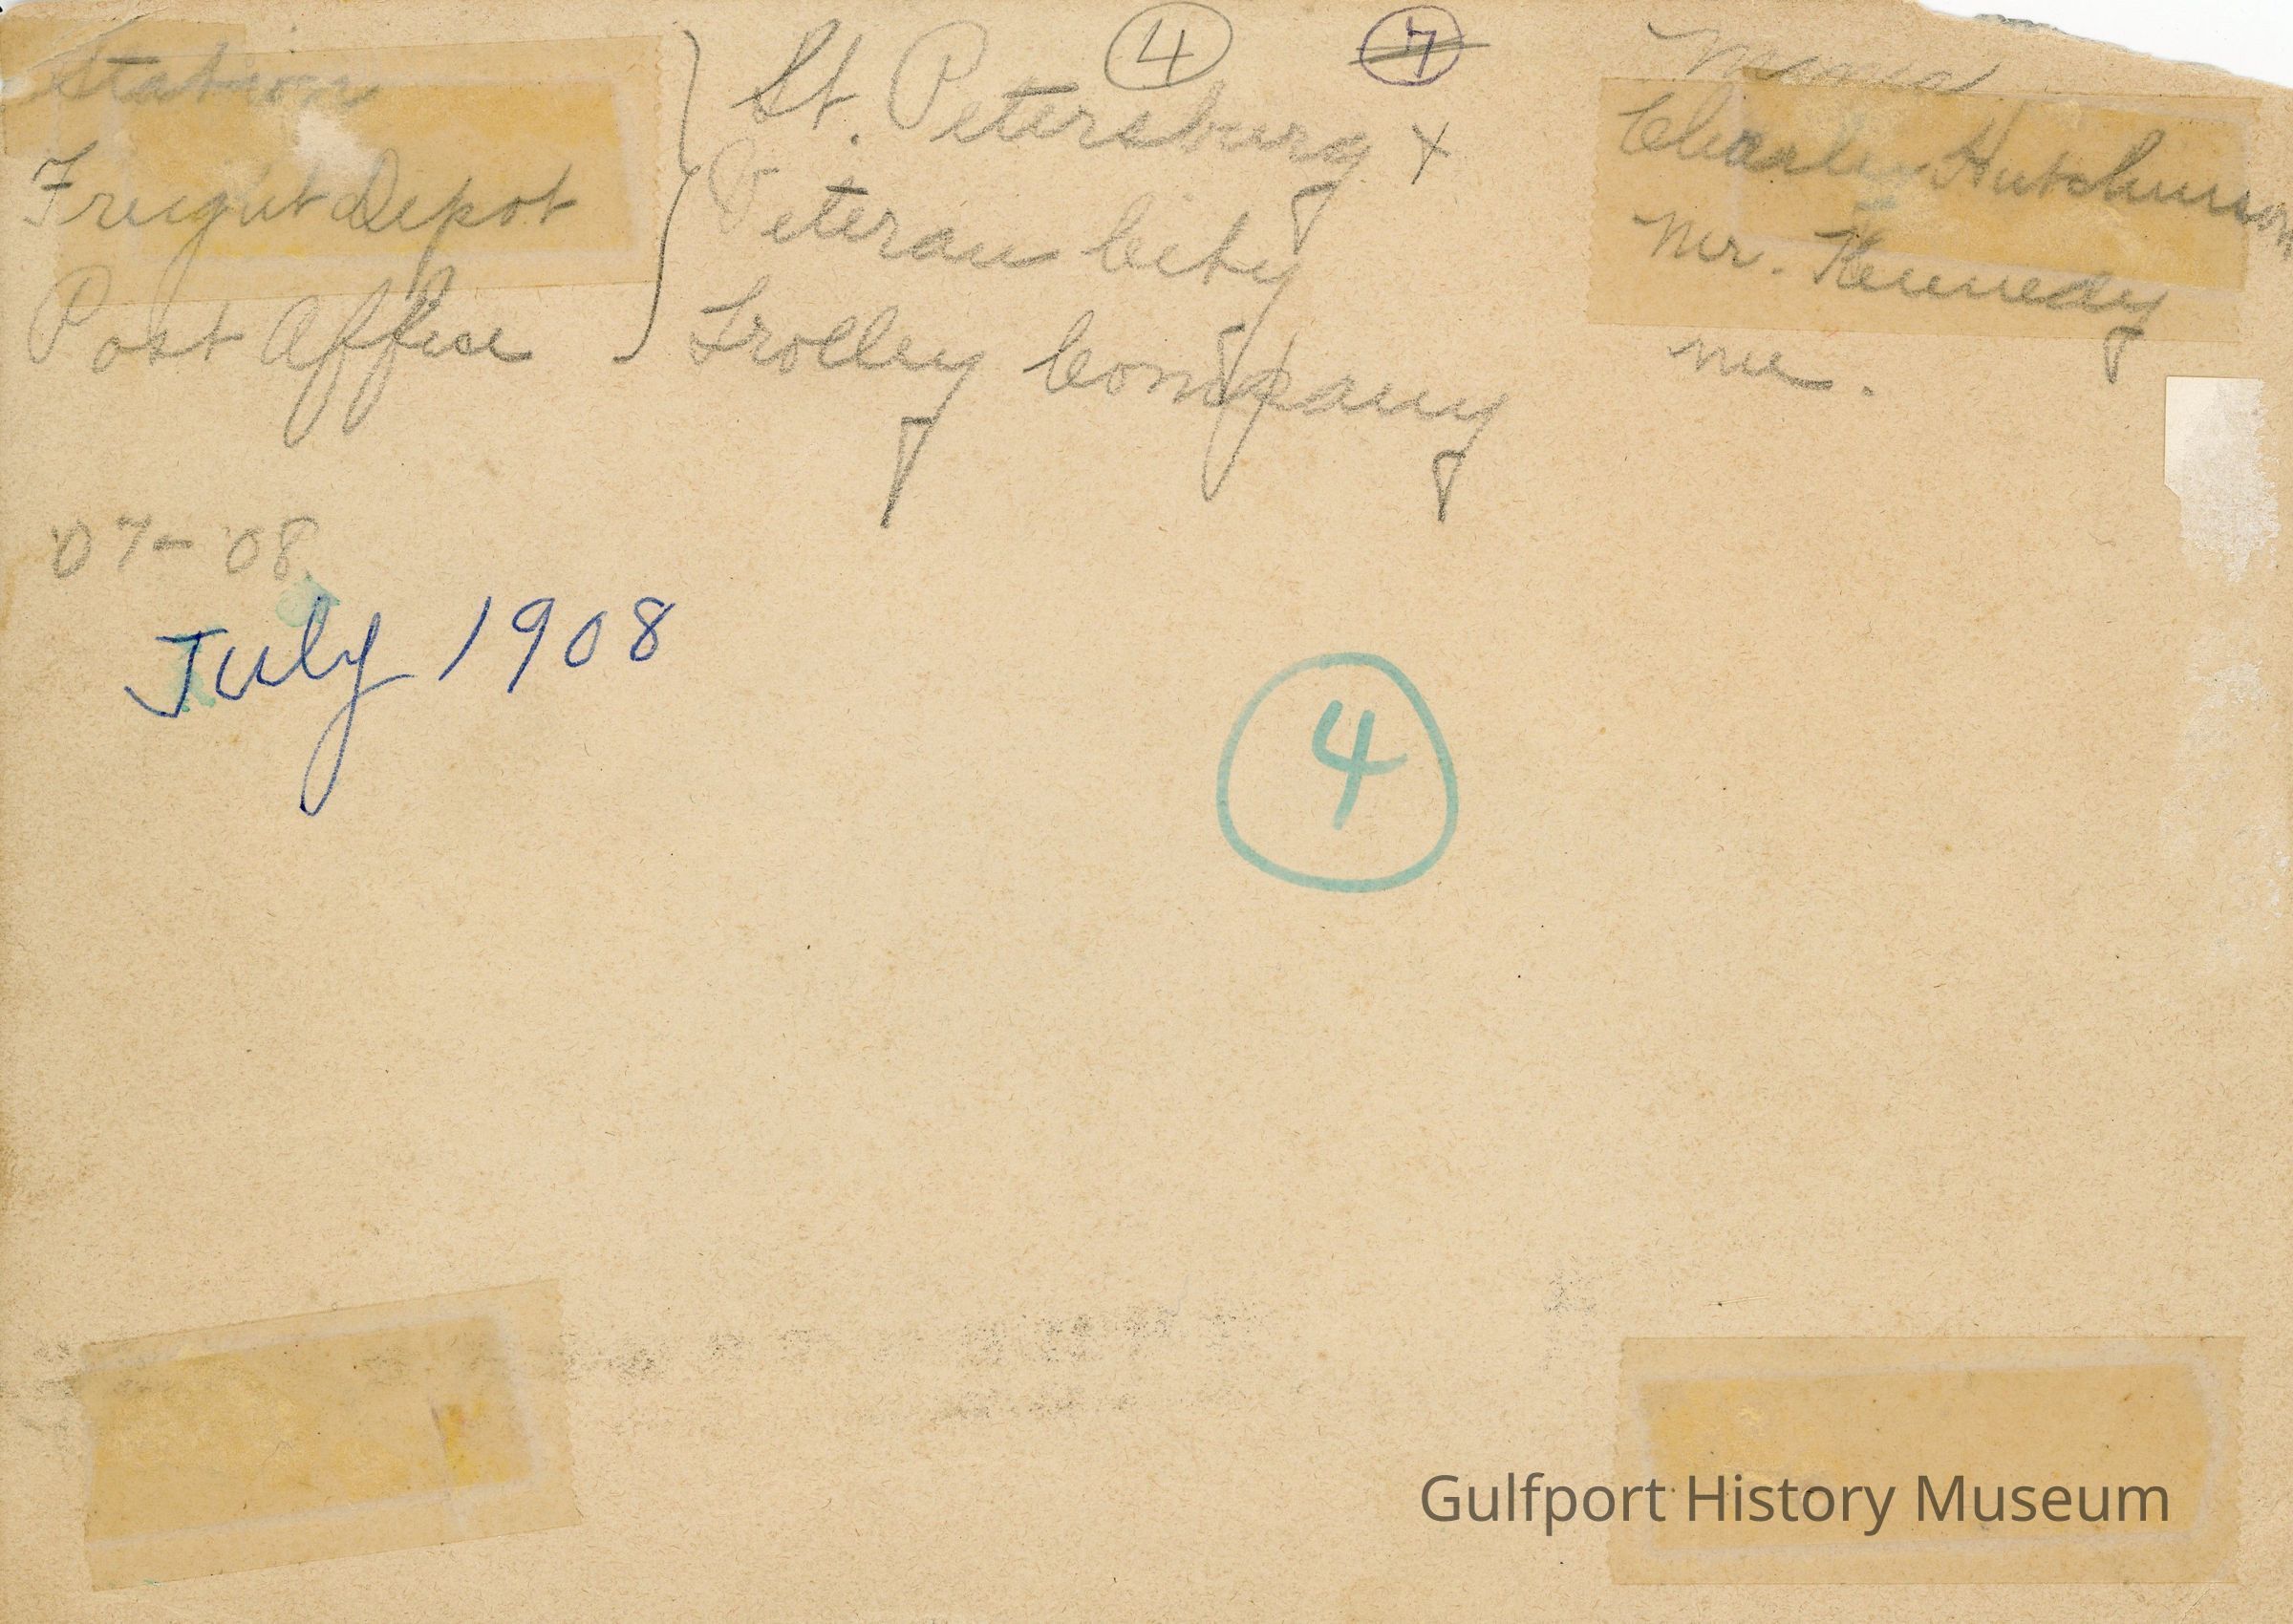 Station
Freight Depot
Post Office
}
④
⑦
St. Petersburg +
Veteran City
Trolley Company
Mama
Charley Hutchinson
Mr. Kennedy
me.
'07-'08
July 1908
④
Gulfport History Museum